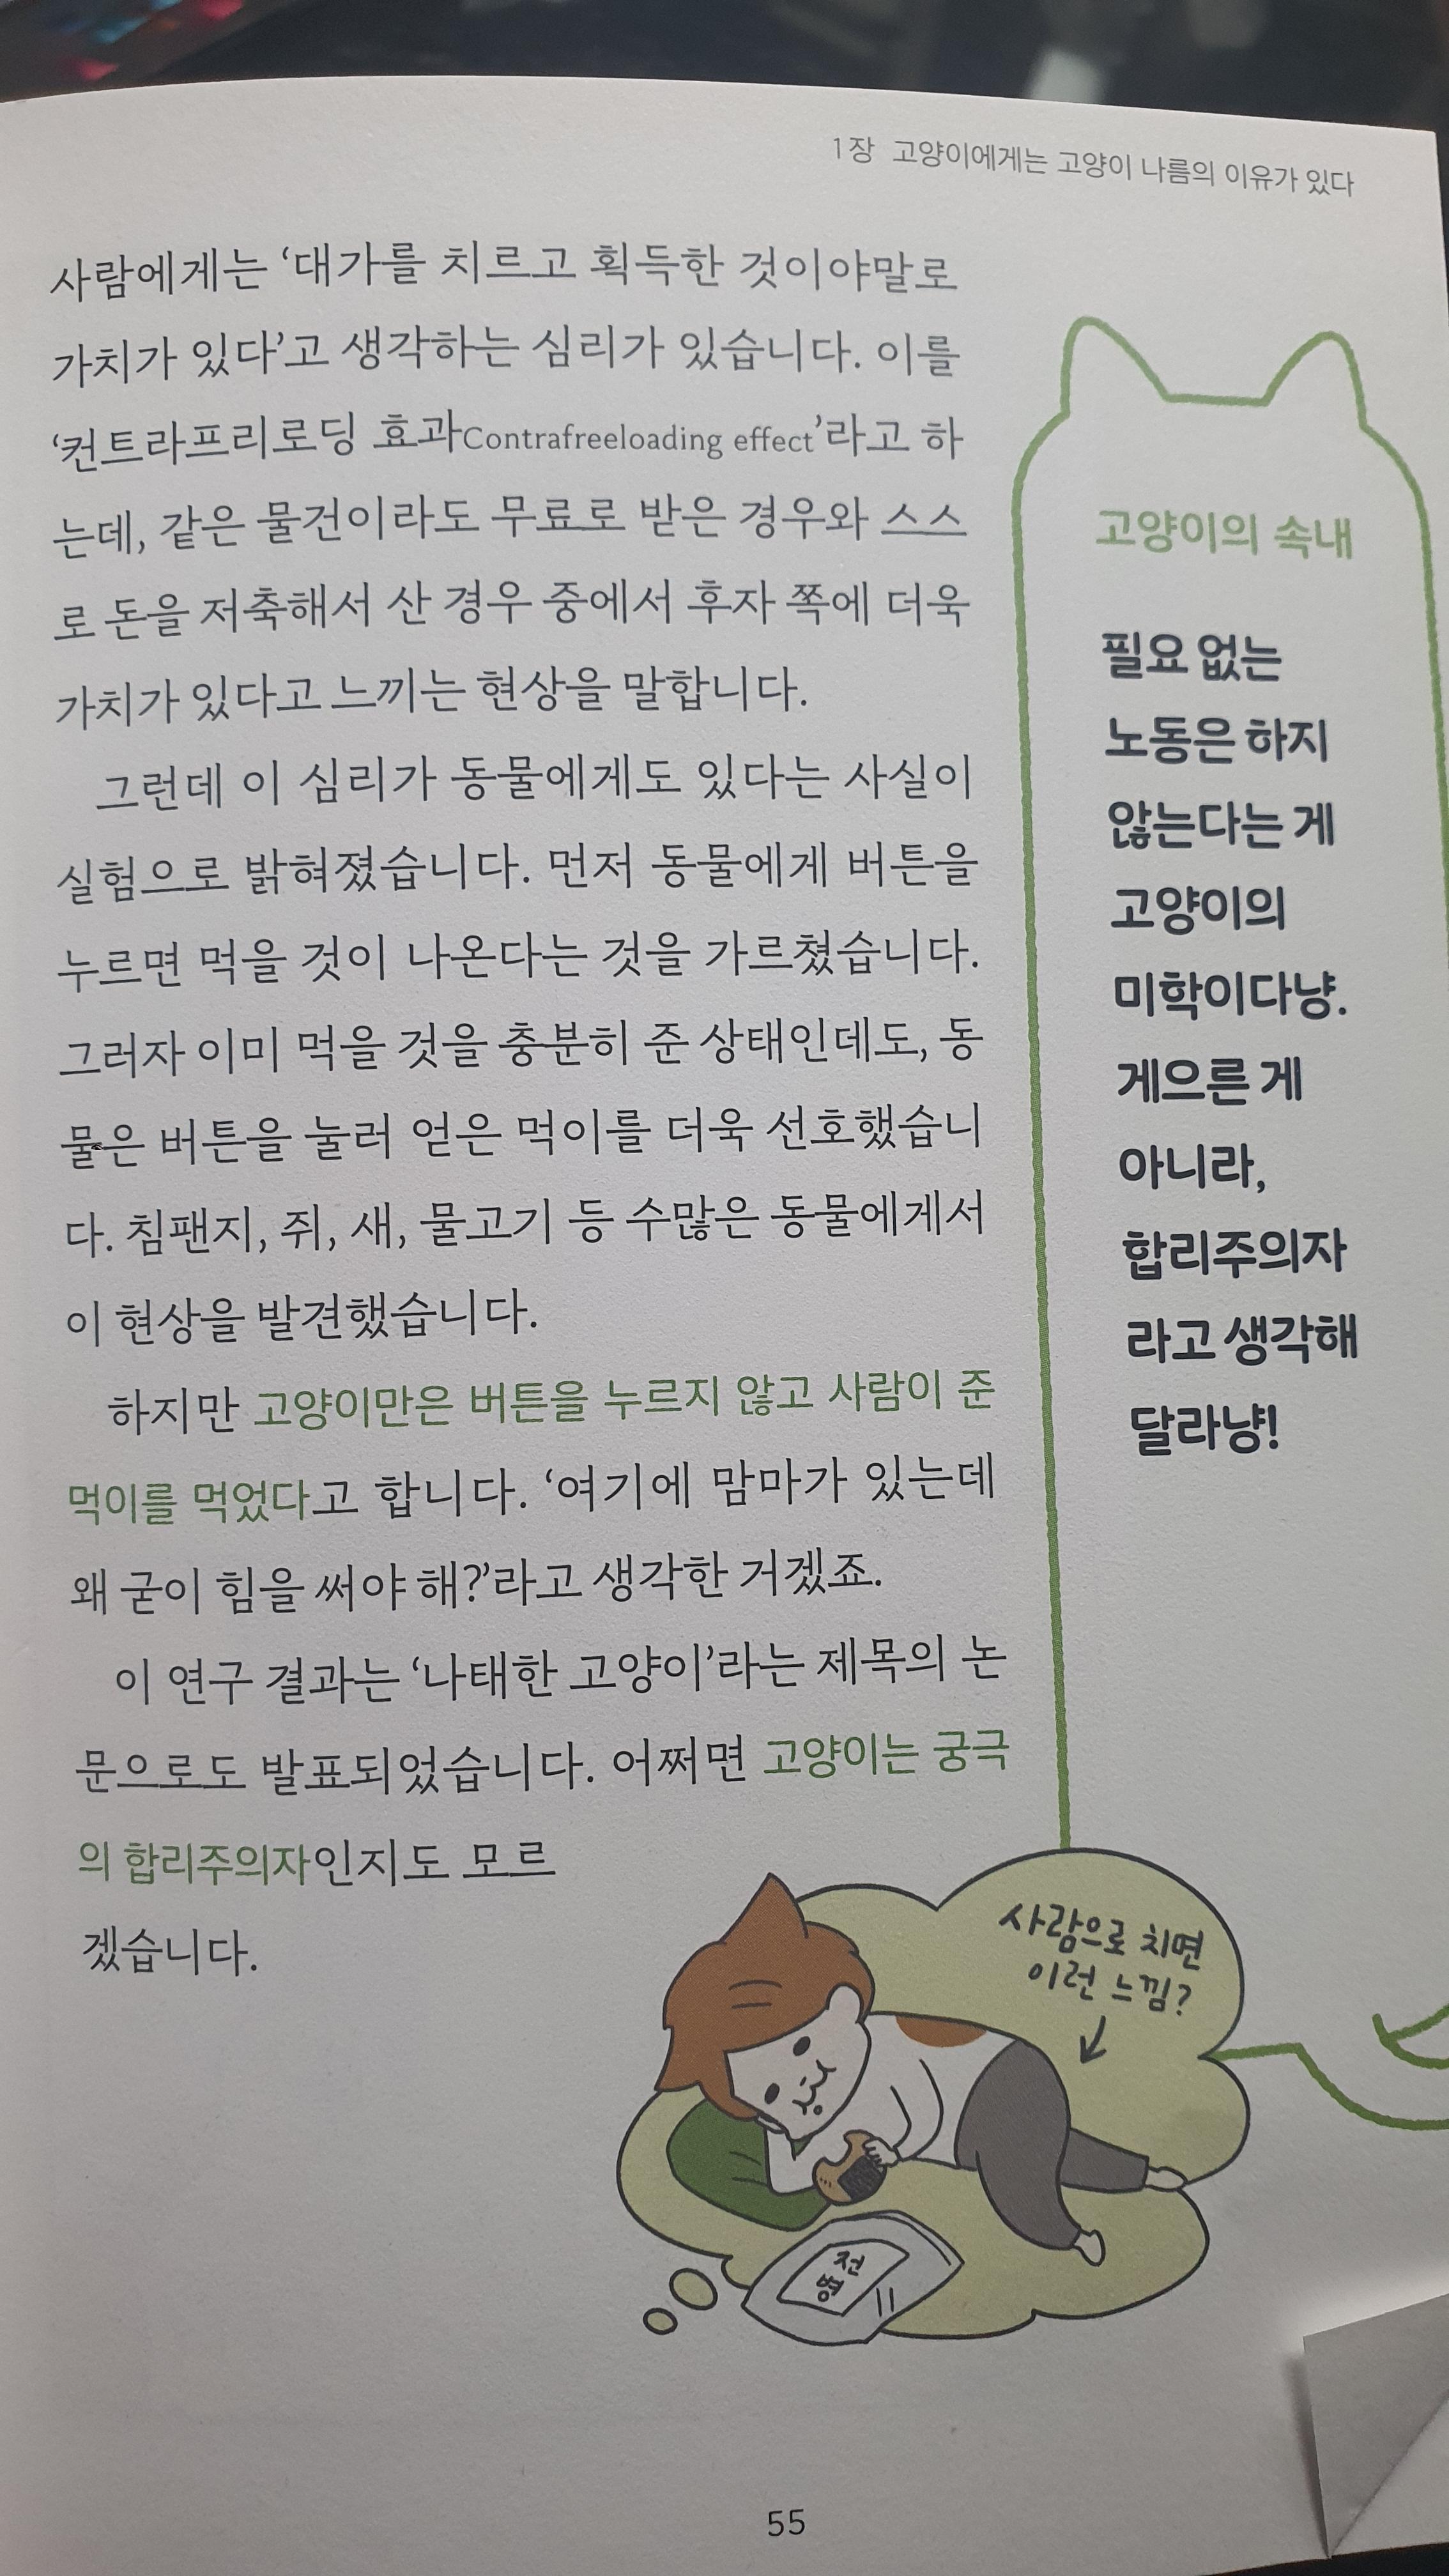 1장 고양이에게는 고양이 나름의 이유가 있다
사람에게는 ‘대가를 치르고 획득한 것이야말로
가치가 있다’고 생각하는 심리가 있습니다. 이를
‘컨트라프리로딩 효과Contrafreeloading effect’라고 하
는데, 같은 물건이라도 무료로 받은 경우와 스스
로 돈을 저축해서 산 경우 중에서 후자 쪽에 더욱
가치가 있다고 느끼는 현상을 말합니다.
그런데 이 심리가 동물에게도 있다는 사실이
실험으로 밝혀졌습니다. 먼저 동물에게 버튼을
누르면 먹을 것이 나온다는 것을 가르쳤습니다.
그러자 이미 먹을 것을 충분히 준 상태인데도, 동
물은 버튼을 눌러 얻은 먹이를 더욱 선호했습니
다. 침팬지, 쥐, 새, 물고기 등 수많은 동물에게서
이 현상을 발견했습니다.
하지만 고양이만은 버튼을 누르지 않고 사람이 준
먹이를 먹었다고 합니다. ‘여기에 맘마가 있는데
왜 굳이 힘을 써야 해?’라고 생각한 거겠죠.
이 연구 결과는 ‘나태한 고양이’라는 제목의 논
문으로도 발표되었습니다. 어쩌면 고양이는 궁극
의 합리주의자인지도 모르
겠습니다.
고양이의 속내
필요 없는
노동은 하지
않는다는 게
고양이의
미학이다냥.
게으른 게
아니라,
합리주의자
라고 생각해
달라냥!
사람으로 치면
이런 느낌?
전
병
55